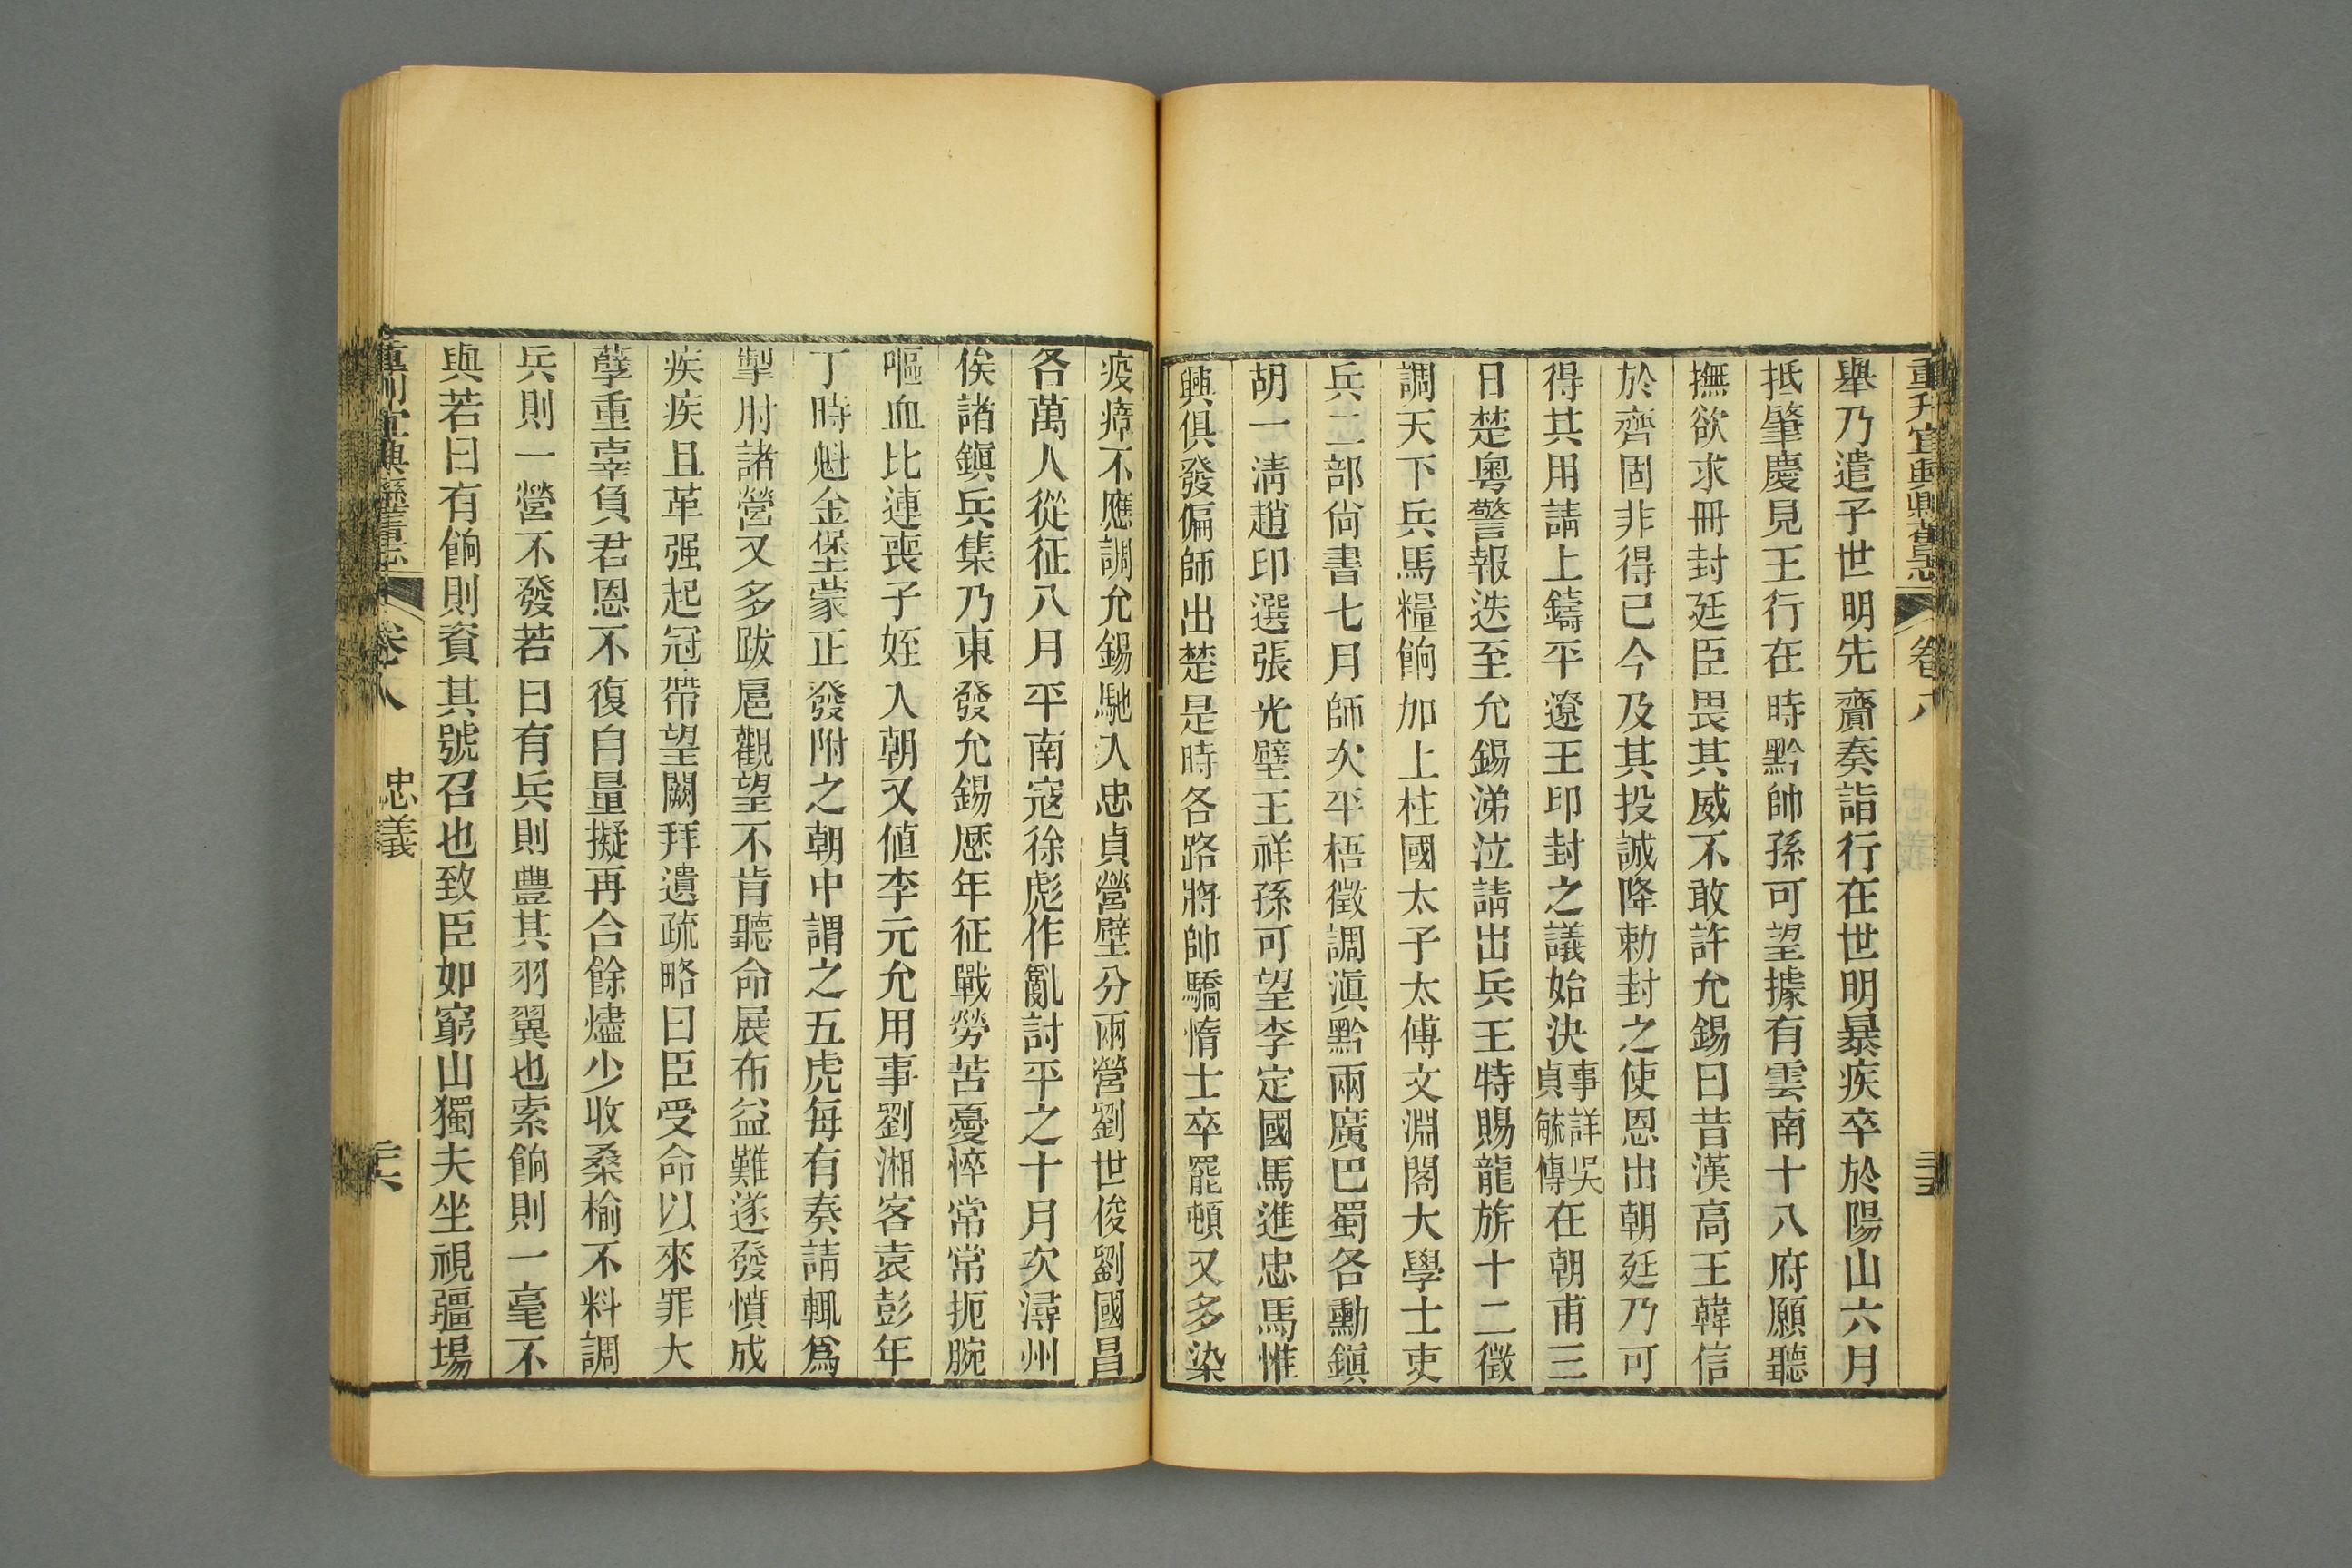 重刋宜興縣舊志 卷八
舉乃遣子世明先齎奏詣行在世明暴疾卒於陽山六月
抵肇慶見王行在時黔帥孫可望據有雲南十八府願聽
撫欲求冊封廷臣畏其威不敢許允錫曰昔漢高王韓信
於齊固非得已今及其投誠降勅封之使恩出朝廷乃可
得其用請上鑄平遼王印封之議始決事詳吳貞毓傳在朝甫三
日楚粵警報迭至允錫涕泣請出兵王特賜龍旂十二徵
調天下兵馬糧餉加上柱國太子太傅文淵閣大學士吏
兵二部尙書七月師次平梧徵調滇黔兩廣巴蜀各勳鎭
胡一淸趙印選張光壁王祥孫可望李定國馬進忠馬惟
興俱發偏師出楚是時各路將帥驕惰士卒罷頓又多染
疫瘴不應調允錫馳入忠貞營壁分兩營劉世俊劉國昌
各萬人從征八月平南寇徐彪作亂討平之十月次潯州
俟諸鎭兵集乃東發允錫歷年征戰勞苦憂悴常常扼腕
嘔血比連喪子姪入朝又値李元允用事劉湘客袁彭年
丁時魁金堡蒙正發附之朝中謂之五虎每有奏請輒爲
掣肘諸營又多跋扈觀望不肯聽命展布益難遂發憤成
疾疾且革强起冠帶望闕拜遺疏略曰臣受命以來罪大
孽重辜負君恩不復自量擬再合餘燼少收桑榆不料調
兵則一營不發若曰有兵則豐其羽翼也索餉則一毫不
與若曰有餉則資其號召也致臣如窮山獨夫坐視疆場
重刋宜興縣舊志 卷八 忠義